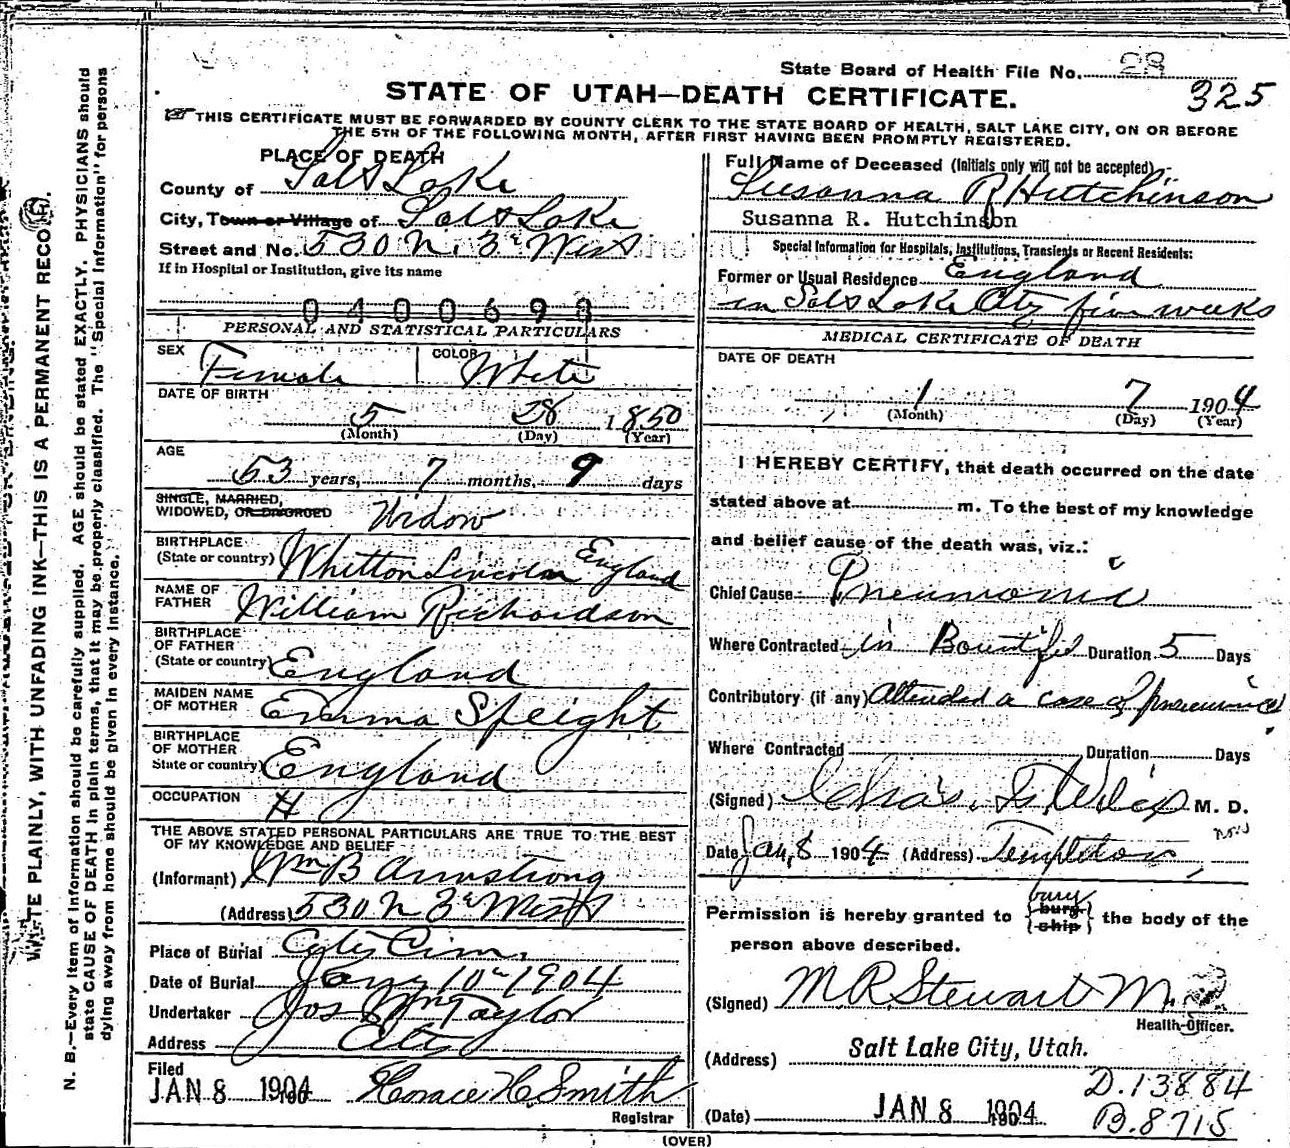 State Board of Health File No. 28
325
STATE OF UTAH—DEATH CERTIFICATE.
THIS CERTIFICATE MUST BE FORWARDED BY COUNTY CLERK TO THE STATE BOARD OF HEALTH, SALT LAKE CITY, ON OR BEFORE
THE 5TH OF THE FOLLOWING MONTH, AFTER FIRST HAVING BEEN PROMPTLY REGISTERED.
WRITE PLAINLY, WITH UNFADING INK—THIS IS A PERMANENT RECORD.
N. B.—Every item of information should be carefully supplied. AGE should be stated EXACTLY. PHYSICIANS should
state CAUSE OF DEATH in plain terms, that it may be properly classified. The "Special Information" for persons
dying away from home should be given in every instance.
PLACE OF DEATH
County of Salt Lake
City, Town or Village of Salt Lake
Street and No. 530 N. 3d West
If in Hospital or Institution, give its name
0400693
PERSONAL AND STATISTICAL PARTICULARS
SEX Female COLOR White
DATE OF BIRTH
5 28 1850
(Month) (Day) (Year)
AGE
53 years, 7 months, 9 days
SINGLE, MARRIED,
WIDOWED, OR DIVORCED Widow
BIRTHPLACE
(State or country) Whitton Lincoln England
NAME OF
FATHER William Richardson
BIRTHPLACE
OF FATHER
(State or country) England
MAIDEN NAME
OF MOTHER Emma Speight
BIRTHPLACE
OF MOTHER
State or country) England
OCCUPATION H
THE ABOVE STATED PERSONAL PARTICULARS ARE TRUE TO THE BEST
OF MY KNOWLEDGE AND BELIEF
(Informant) Wm B Armstrong
(Address) 530 N 3d West
Place of Burial City Cem.
Date of Burial Jany 10th 1904
Undertaker Jos Wm Taylor
Address City
Filed
JAN 8 1904 Horace H. Smith
Registrar
Full Name of Deceased (Initials only will not be accepted)
Susanna R Hutchinson
Susanna R. Hutchinson
Special Information for Hospitals, Institutions, Transients or Recent Residents:
Former or Usual Residence England
in Salt Lake City five weeks
MEDICAL CERTIFICATE OF DEATH
DATE OF DEATH
1 7 1904
(Month) (Day) (Year)
I HEREBY CERTIFY, that death occurred on the date
stated above at m. To the best of my knowledge
and belief cause of the death was, viz.:
Chief Cause Pneumonia
Where Contracted in Bountiful Duration 5 Days
Contributory (if any) Attended a case of pneumonia
Where Contracted Duration Days
(Signed) Chas. M. D.
Date Jan, 8 1904 (Address) Templeton
Permission is hereby granted to bury
bury
ship
the body of the
person above described.
(Signed) M R Stewart M.
Health Officer.
(Address) Salt Lake City, Utah.
D.13884
(Date) JAN 8 1904 B.8715
(OVER)